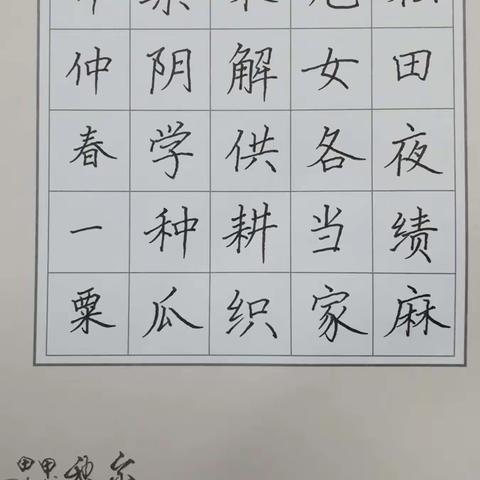 田夜绩麻
女各当家
解供耕织
阴学种瓜
仲春一粟